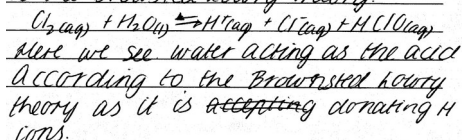 Cl₂(aq) + H₂O(l) ⇌ H⁺(aq) + Cl⁻(aq) + HClO(aq)
Here we see water acting as the acid
according to the Brownsted Lowry
theory as it is accepting donating H
ions.